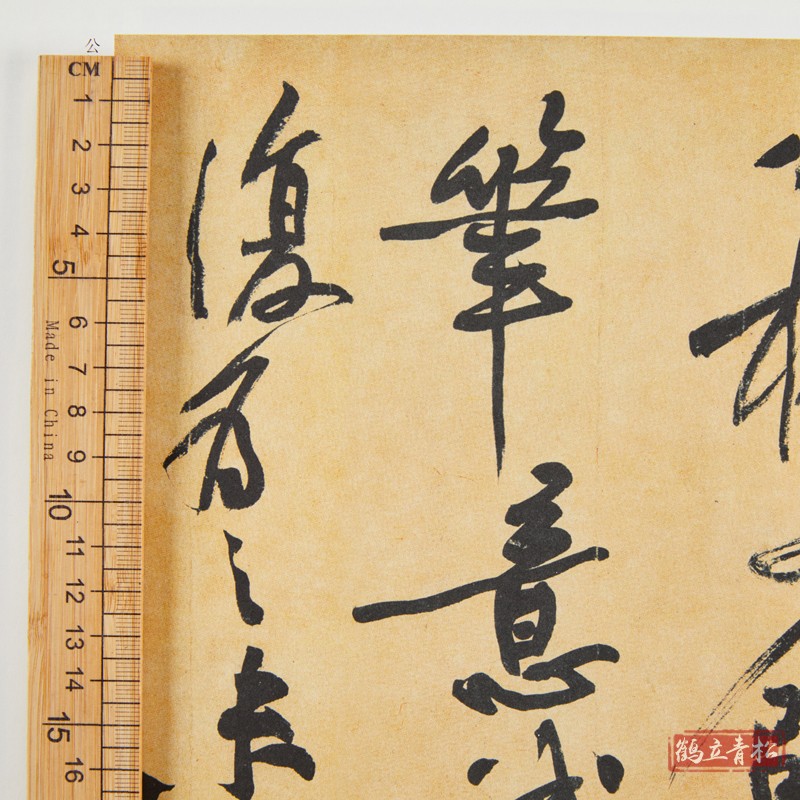 筆意
復為之未
公
CM
1
2
3
4
5
6
7
8
9
10
11
12
13
14
15
16
Made in China
鹤立青松